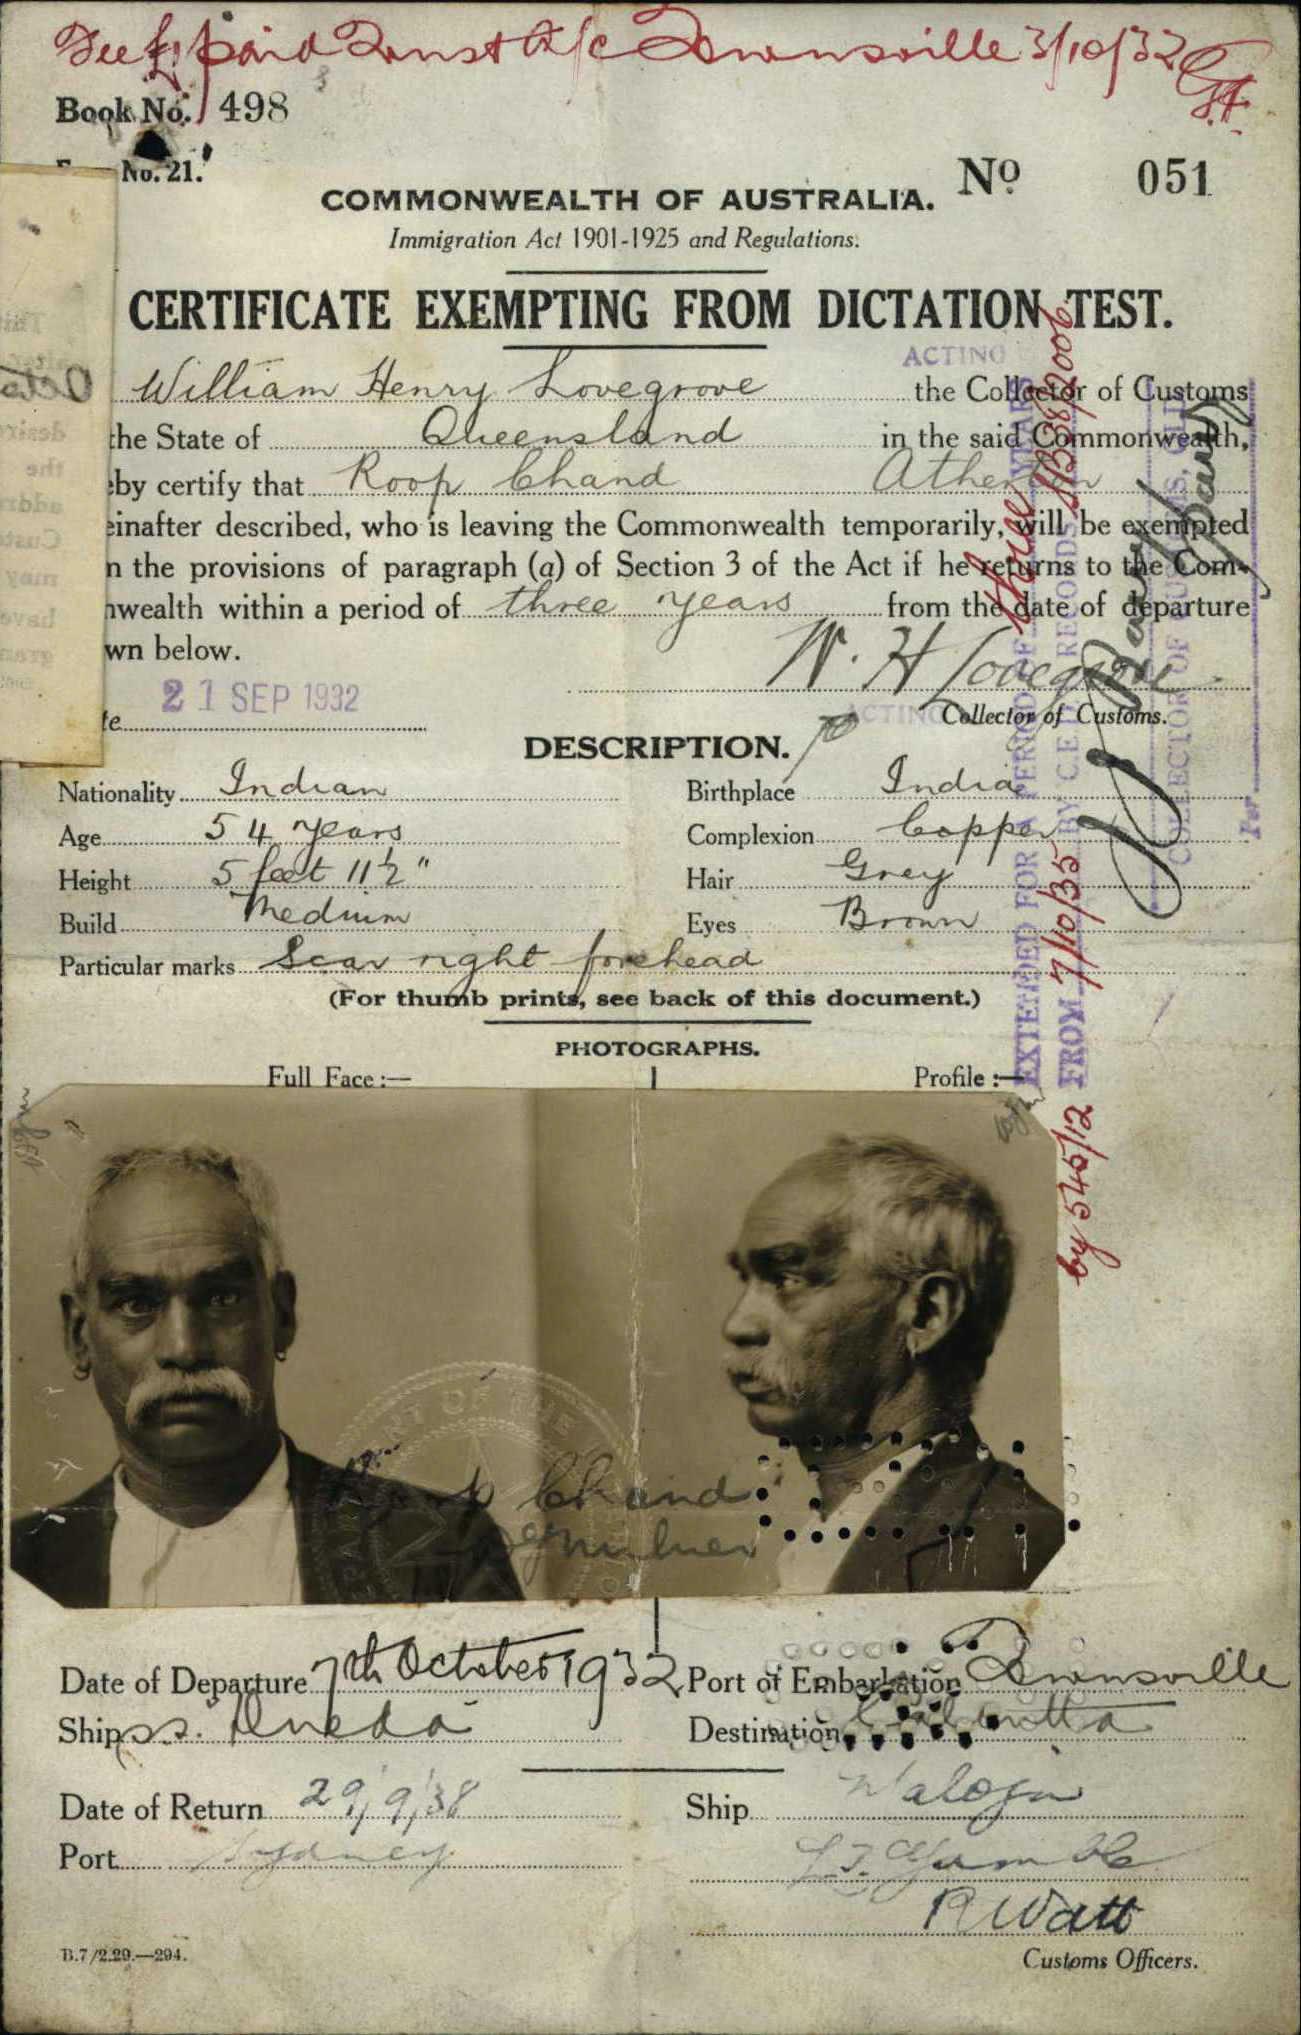 Fee £1 paid Trust A/c Townsville 3/10/32
Book No. 498
No. 21.
No. 051
COMMONWEALTH OF AUSTRALIA.
Immigration Act 1901-1925 and Regulations.
CERTIFICATE EXEMPTING FROM DICTATION TEST.
ACTING
William Henry Lovegrove the Collector of Customs
the State of Queensland in the said Commonwealth,
eby certify that Roop Chand Atherton
einafter described, who is leaving the Commonwealth temporarily, will be exempted
n the provisions of paragraph (a) of Section 3 of the Act if he returns to the Com-
nwealth within a period of three years from the date of departure
wn below.
W. H Lovegrove
21 SEP 1932
te
ACTING Collector of Customs.
DESCRIPTION.
Nationality Indian Birthplace India
Age 54 years Complexion Copper
Height 5 feet 11½" Hair Grey
Build Medium Eyes Brown
Particular marks Scar right forehead
(For thumb prints, see back of this document.)
PHOTOGRAPHS.
Full Face :— Profile :—
EXTENDED FOR A PERIOD OF three YEARS
FROM 7/10/35 BY C.E. RECORDS
by 545/12
COLLECTOR OF CUSTOMS,
Per
Roop Chand
Date of Departure 7th October 1932 Port of Embarkation Townsville
Ship s.s. Queda Destination Calcutta
Date of Return 29/9/38 Ship
Port Sydney
R Watt
Customs Officers.
B.7/2.29.—294.